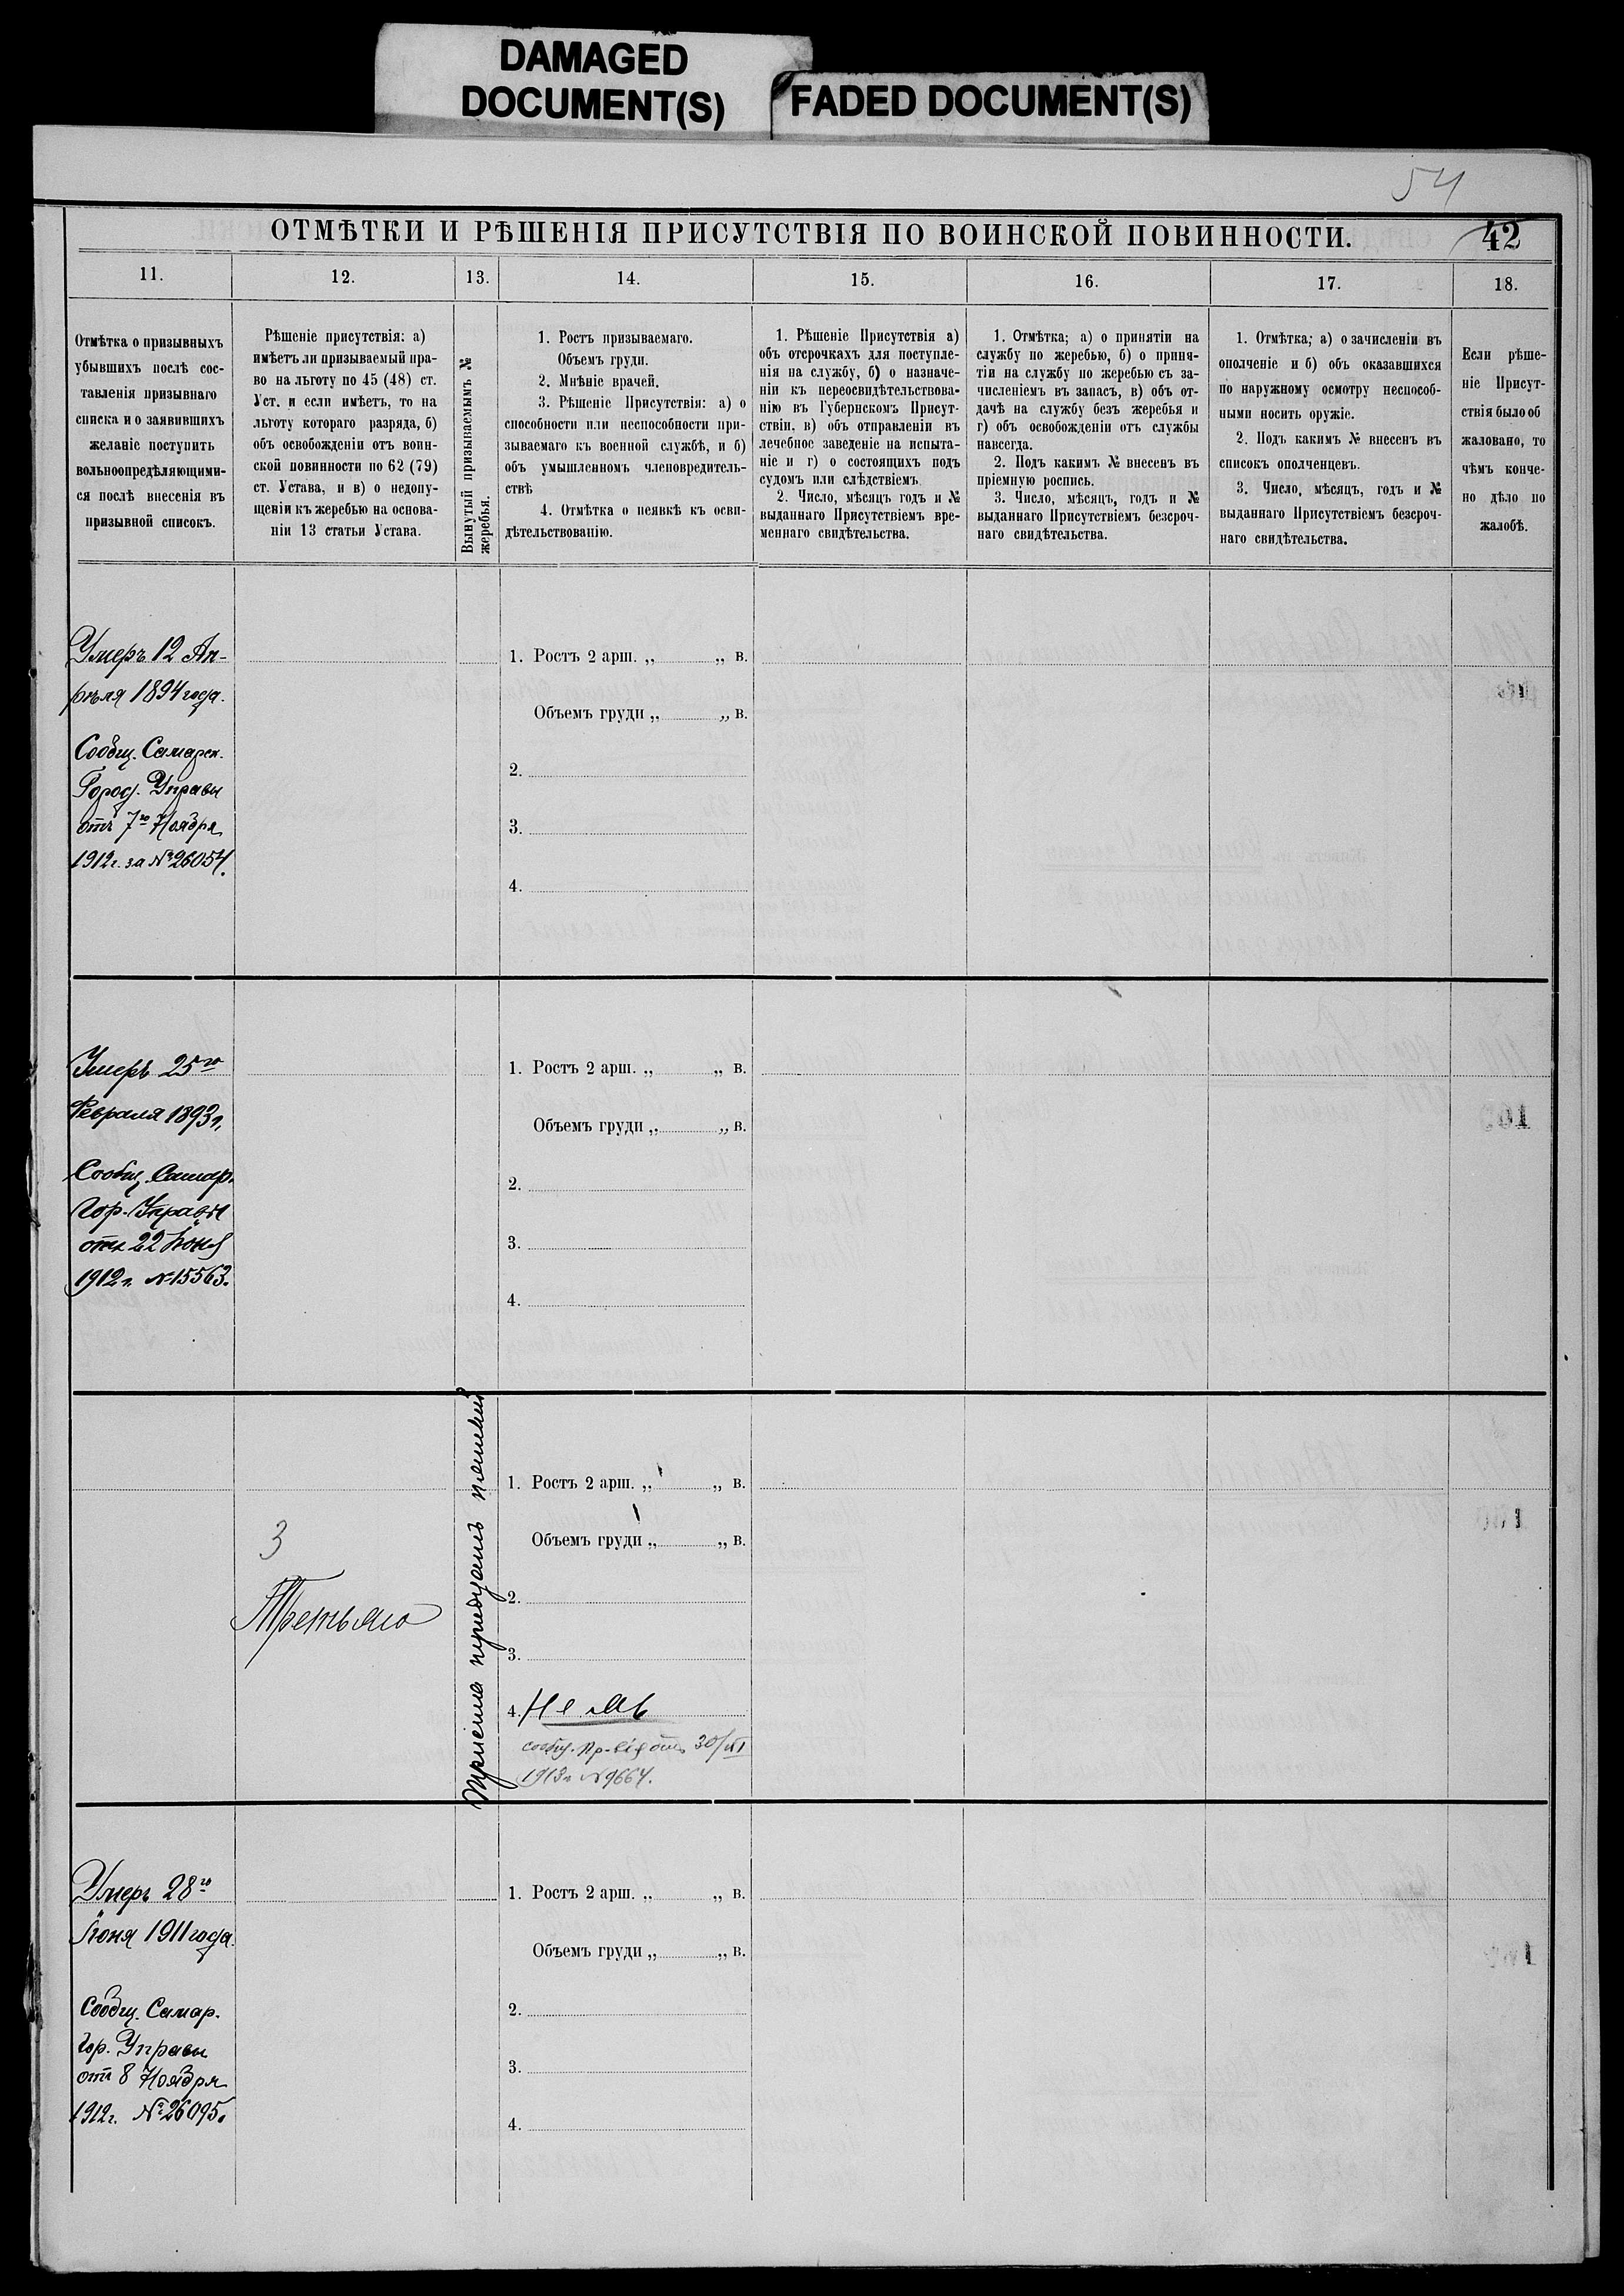 DAMAGED
DOCUMENT(S)
FADED DOCUMENT(S)
54
ОТМѢТКИ И РѢШЕНІЯ ПРИСУТСТВІЯ ПО ВОИНСКОЙ ПОВИННОСТИ.
42
11.
12.
13.
14.
15.
16.
17.
18.
Отмѣтка о призывныхъ
убывшихъ послѣ сос-
тавленія призывнаго
списка и о заявившихъ
желаніе поступить
вольноопредѣляющими-
ся послѣ внесенія въ
призывной списокъ.
Рѣшеніе присутствія: а)
имѣетъ ли призываемый пра-
во на льготу по 45 (48) ст.
Уст. и если имѣетъ, то на
льготу котораго разряда, б)
объ освобожденіи отъ воин-
ской повинности по 62 (79)
ст. Устава, и в) о недопу-
щеніи къ жеребью на основа-
ніи 13 статьи Устава.
Вынутый призываемымъ №
жеребья.
1. Ростъ призываемаго.
Объемъ груди.
2. Мнѣніе врачей.
3. Рѣшеніе Присутствія: а) о
способности или неспособности при-
зываемаго къ военной службѣ, и б)
объ умышленномъ членовредитель-
ствѣ
4. Отмѣтка о неявкѣ къ осви-
дѣтельствованію.
1. Рѣшеніе Присутствія а)
объ отсрочкахъ для поступле-
нія на службу, б) о назначе-
ніи къ переосвидѣтельствова-
нію въ Губернскомъ Присут-
ствіи, в) объ отправленіи въ
лечебное заведеніе на испыта-
ніе и г) о состоящихъ подъ
судомъ или слѣдствіемъ
2. Число, мѣсяцъ годъ и №
выданнаго Присутствіемъ вре-
меннаго свидѣтельства.
1. Отмѣтка; а) о принятіи на
службу по жеребью, б) о приня-
тіи на службу по жеребью съ за-
численіемъ въ запасъ, в) объ от-
дачѣ на службу безъ жеребья и
г) объ освобожденіи отъ службы
навсегда.
2. Подъ какимъ № внесенъ въ
пріемную роспись.
3. Число, мѣсяцъ, годъ и №
выданнаго Присутствіемъ безсроч-
наго свидѣтельства.
1. Отмѣтка; а) о зачисленіи въ
ополченіе и б) объ оказавшихся
по наружному осмотру неспособ-
ными носить оружіе.
2. Подъ какимъ № внесенъ въ
списокъ ополченцевъ.
3. Число, мѣсяцъ, годъ и №
выданнаго Присутствіемъ безсроч-
наго свидѣтельства.
Если рѣше-
ніе Присут-
ствія было об
жаловано, то
чѣмъ конче-
но дѣло по
жалобѣ.
Умеръ 12 Ап-
рѣля 1894 года.
Сообщ. Самарск.
Город. Управы
отъ 7го Ноября
1912г. за № 26054.
1. Ростъ 2 арш. „ „ в.
Объемъ груди „ „ в.
2.
3.
4.
Умеръ 25го
Февраля 1893г.
Сообщ. Самар.
Гор. Управы
отъ 22 Іюня
1912г. № 15563.
1. Ростъ 2 арш. „ „ в.
Объемъ груди „ „ в.
2.
3.
4.
3
Третьяго
1. Ростъ 2 арш. „ „ в.
Объемъ груди „ „ в.
2.
3.
4.
сообщ. Пр-вія отъ 30/XI
1913г. № 9664.
Умеръ 28го
Іюня 1911 года.
Сообщ. Самар.
Гор. Управы
отъ 8 Ноября
1912г. № 26095.
1. Ростъ 2 арш. „ „ в.
Объемъ груди „ „ в.
2.
3.
4.